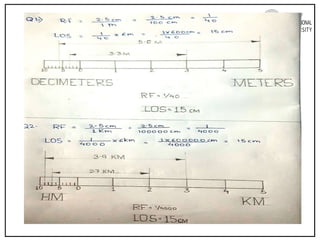 Q1) RF = 2.5cm / 1m = 2.5cm / 100cm = 1/40
LOS = 1/40 × 6m = 1×600cm / 40 = 15cm
3.3M
10 5 0 1 2 3 4 5
DECIMETERS METERS
RF = 1/40
LOS = 15 CM
Q2- RF = 2.5cm / 1Km = 2.5cm / 100000cm = 1/4000
LOS = 1/4000 × 6km = 1×600000cm / 4000 = 15cm
3.9 KM
2.7 KM
10 5 0 1 2 3 4 5
HM KM
RF = 1/4000
LOS = 15CM
SITY